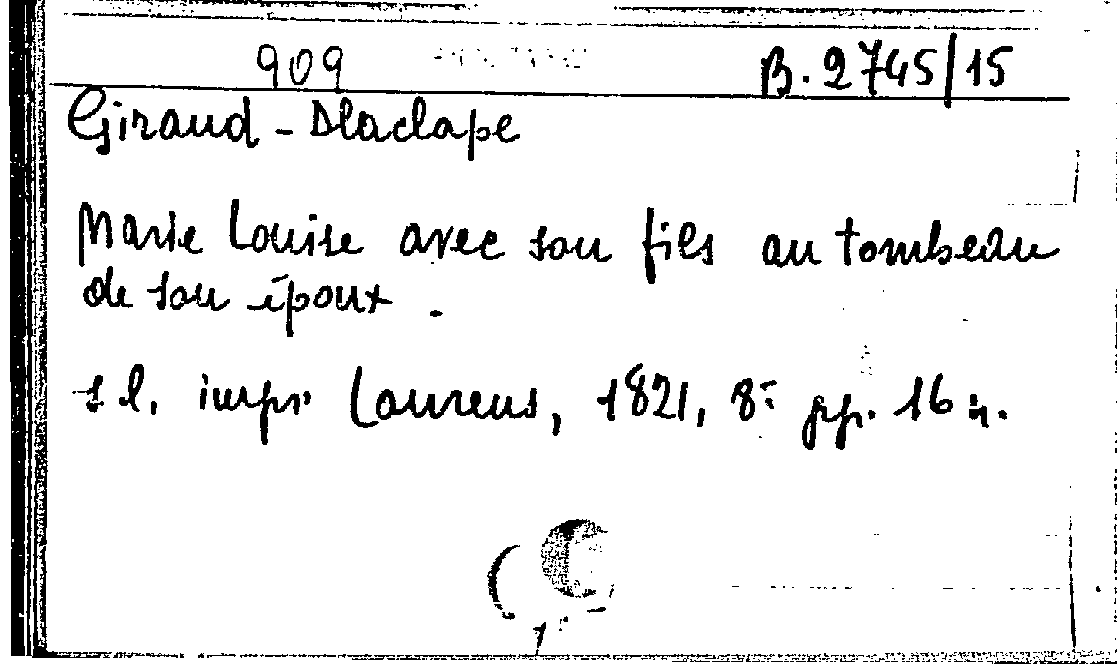 909 B. 2745/15
Giraud - Dlaclape
Marie Louise avec son fils au tombeau
de son époux.
s l. impr Laurens, 1821, 8º pp. 16 n.